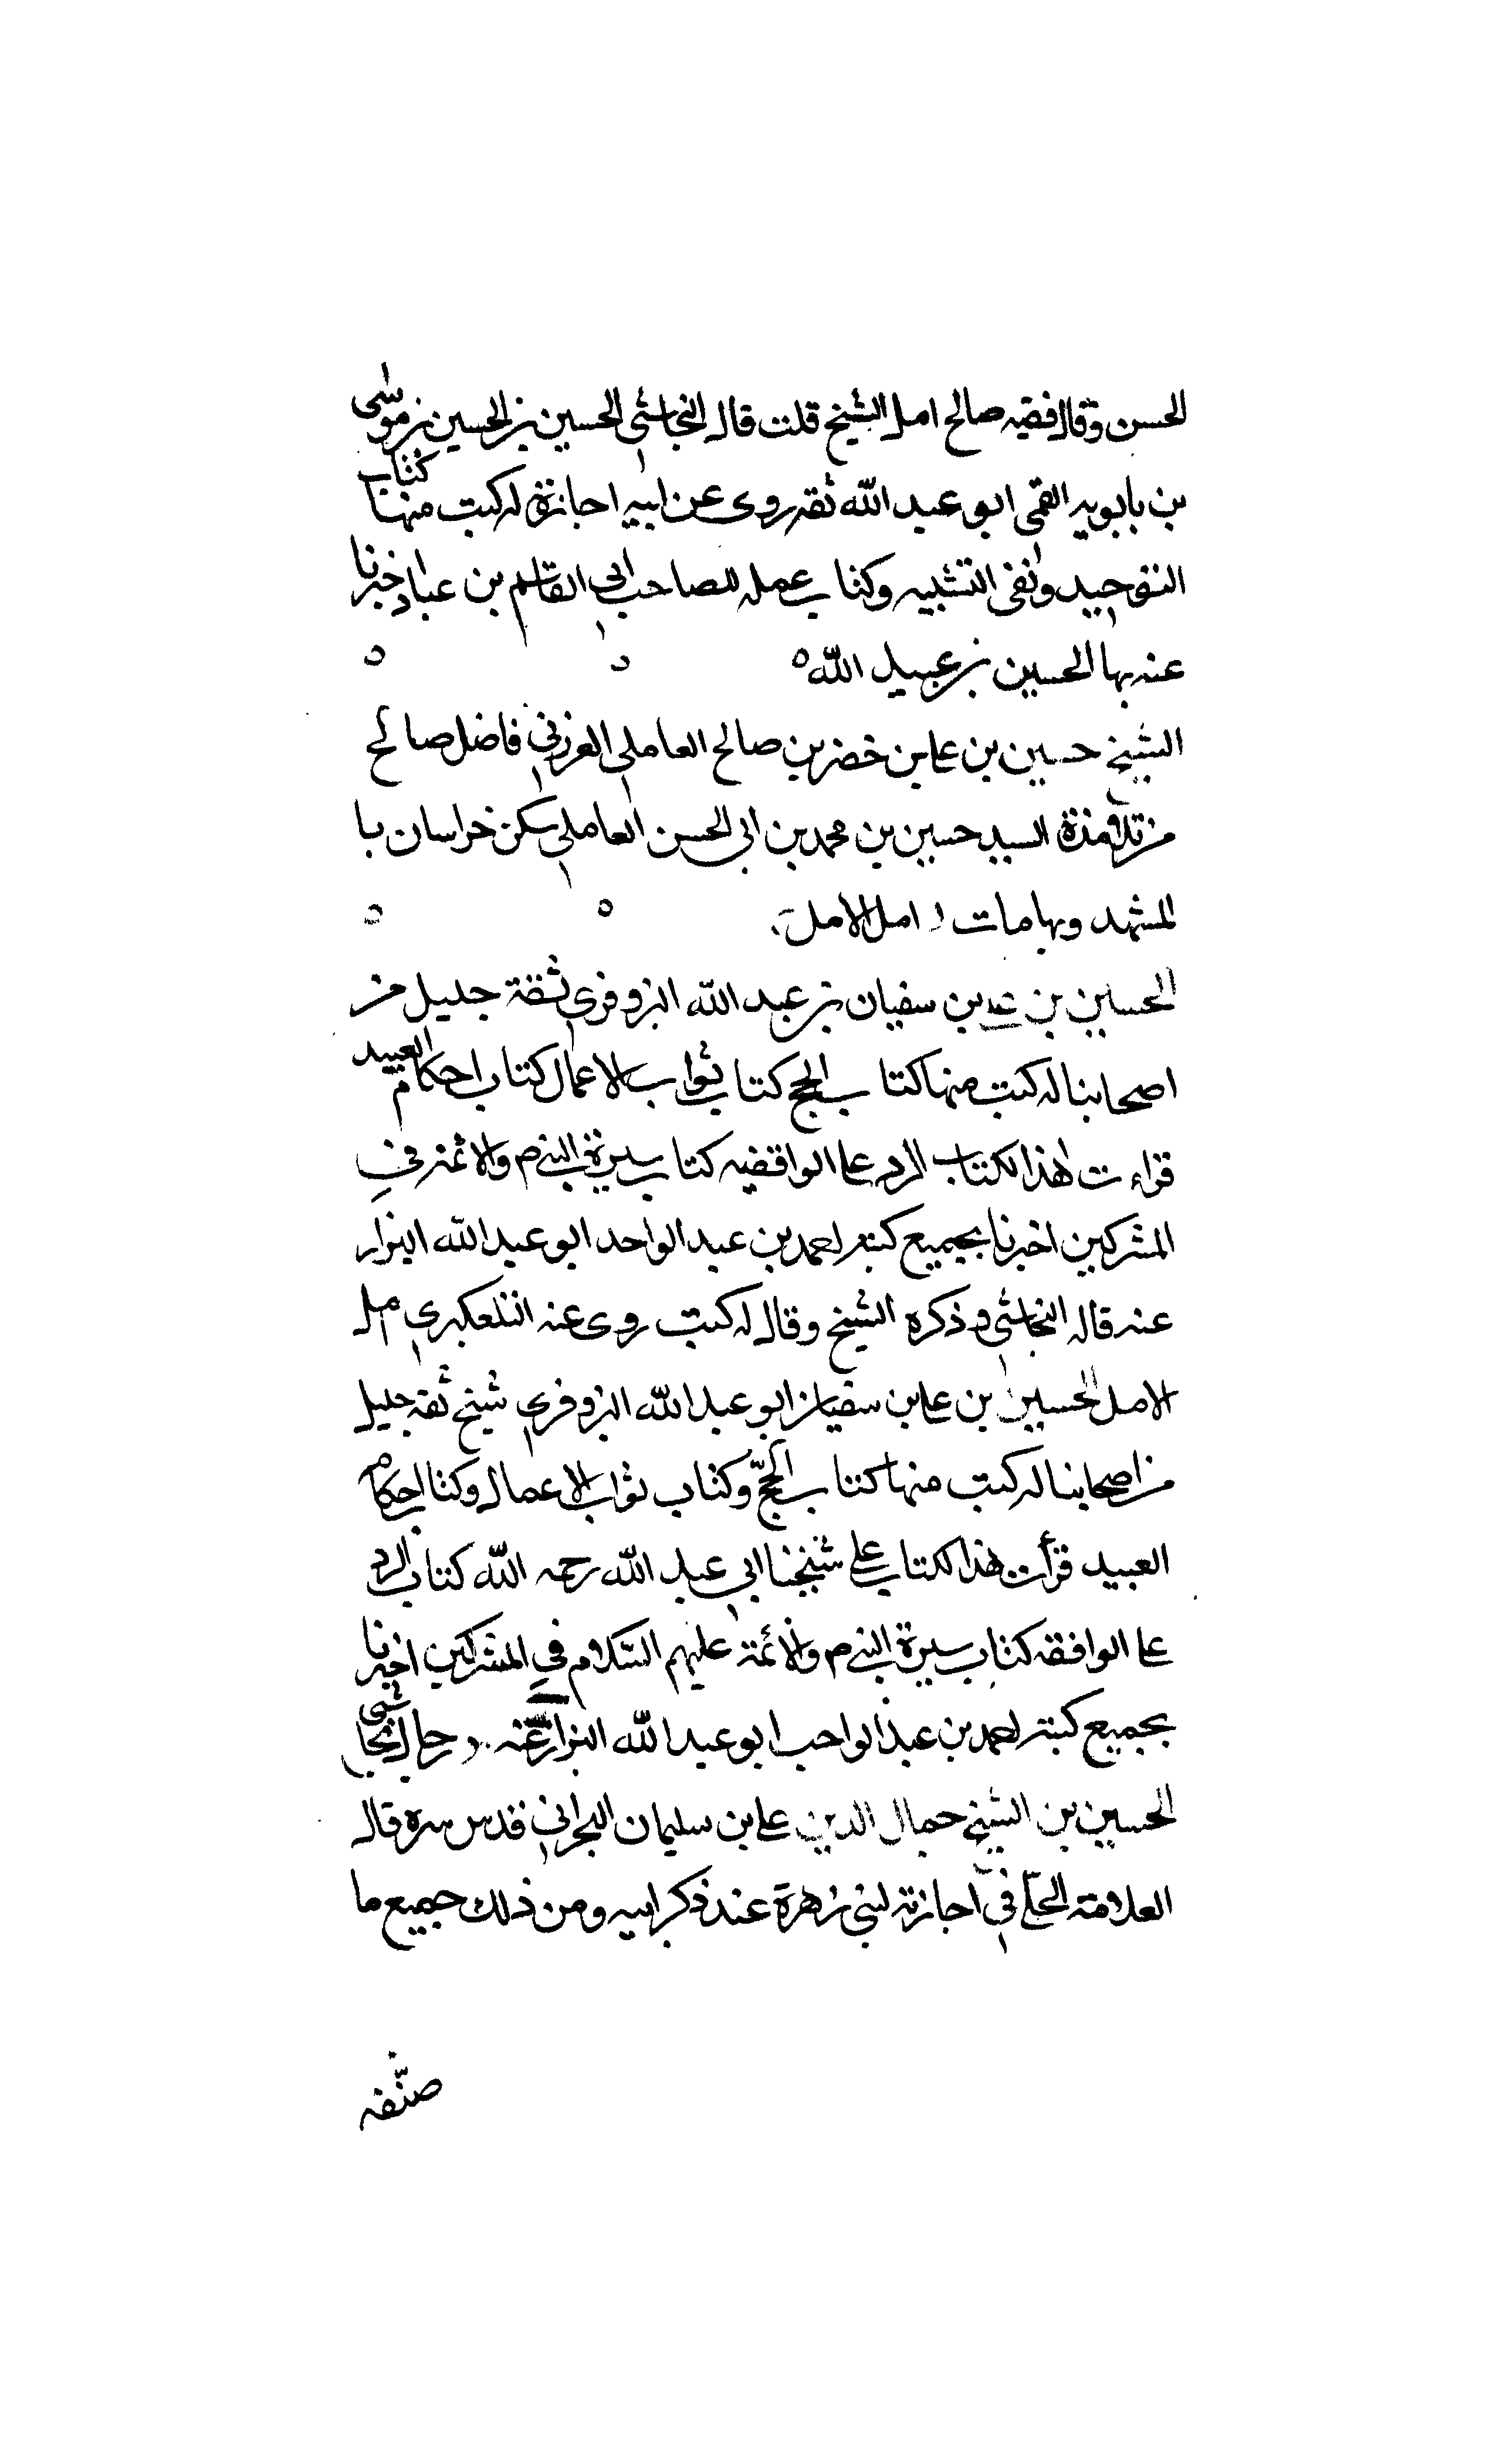 الحسن وقال فقيه صالح امل الشيخ قلت قال النجاشي الحسين بن الحسين بن موسى
بن بابويه القمي ابو عبد الله ثقه روى عن ابيه اجازة له كتب منها كتاب
التوحيد ونفي التشبيه وكتاب عمله للصاحب ابي القاسم بن عباد اخبرنا
عنه بها الحسين بن عبيد الله ه
الشيخ حسين بن علي بن خضر بن صالح العاملي الفرزلي فاضل صالح
من تلامذة السيد حسين بن محمد بن ابي الحسن العاملي سكن خراسان با
لمشهد وبها مات امل الامل
الحسين بن علي بن سفيان بن عبد الله البزوفري ثقة جليل من
اصحابنا له كتب منها كتاب الحج كتاب ثواب الاعمال كتاب احكام العبيد
قراءت هذا الكتاب الرد على الواقفيه كتاب سيرة النبي ص والائمه في
المشركين اخبرنا بجميع كتبه احمد بن عبد الواحد ابو عبد الله البزار
عنه قاله النجاشي وذكره الشيخ وقال له كتب روى عنه التلعكبري امل
الامل الحسين بن علي بن سفيان ابو عبد الله البزوفري شيخ ثقه جليل
من اصحابنا له كتب منها كتاب الحجّ وكتاب ثواب الاعمال وكتاب احكام
العبيد قرأت هذا الكتاب على شيخنا ابي عبد الله رحمه الله كتاب الرد
على الواقفه كتاب سيرة النبي ص والائمة عليهم السّلام في المشركين اخبرنا
بجميع كتبه احمد بن عبد الواحد ابو عبد الله البزار عنه رجال النجاشي
الحسين بن الشيخ جمال الدين علي بن سليمان البحراني قدس سره قال
العلامة الحلي في اجازته لبني زهرة عند ذكر ابيه ومن ذلك جميع ما
صنّفه